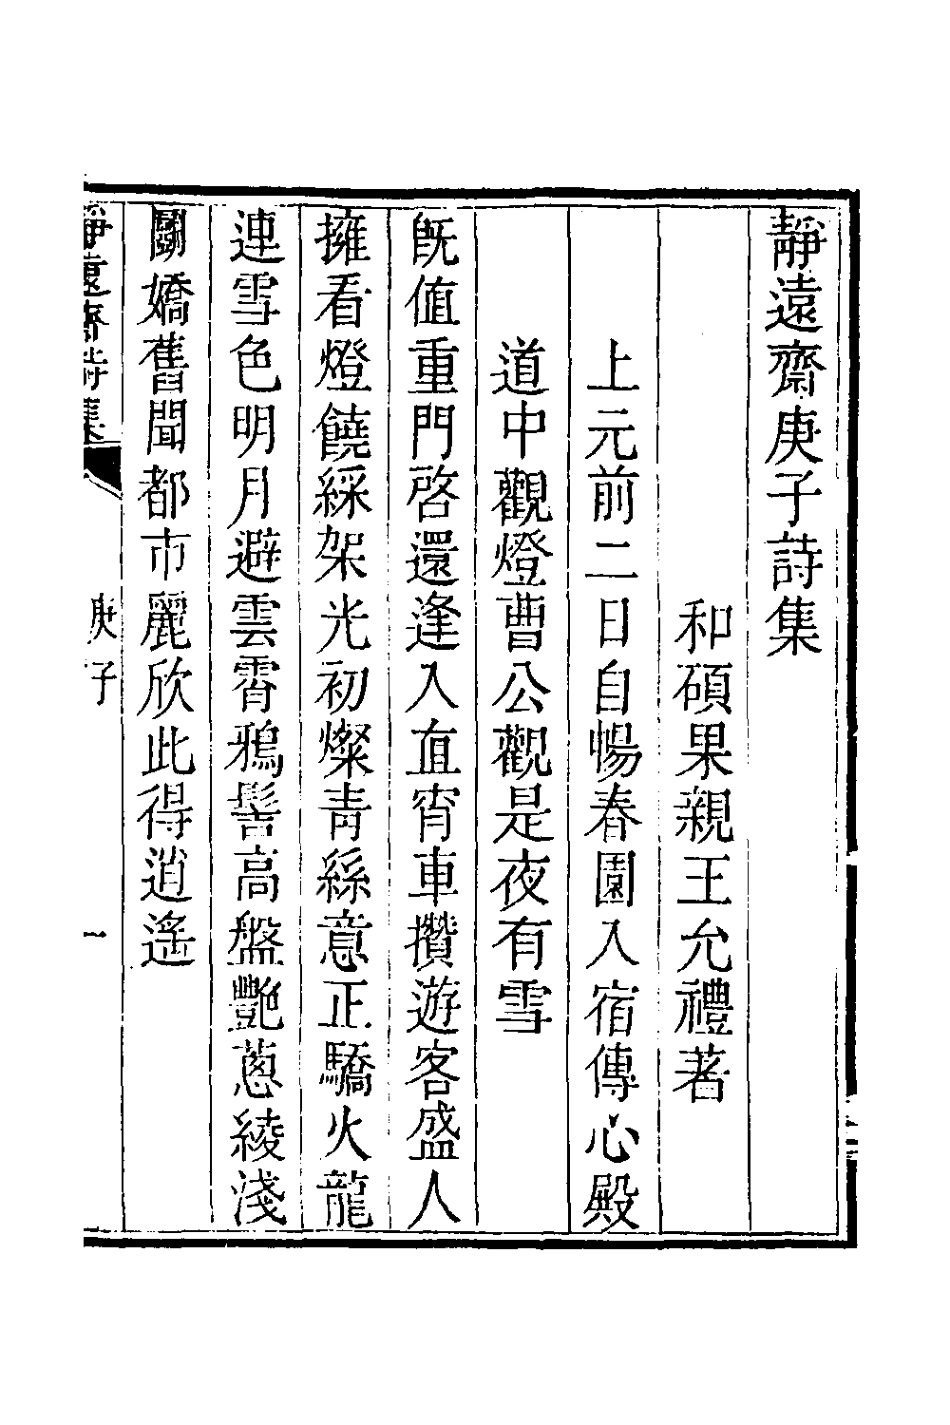 靜遠齋庚子詩集
和碩果親王允禮著
上元前二日自暢春園入宿傳心殿
道中觀燈曹公觀是夜有雪
旣値重門啓還逢入直宵車攢遊客盛人
擁看燈饒綵架光初燦靑絲意正驕火龍
連雪色明月避雲霄鴉髻高盤艷蔥綾淺
鬭嬌舊聞都市麗欣此得逍遙
靜遠齋詩集
庚子
一